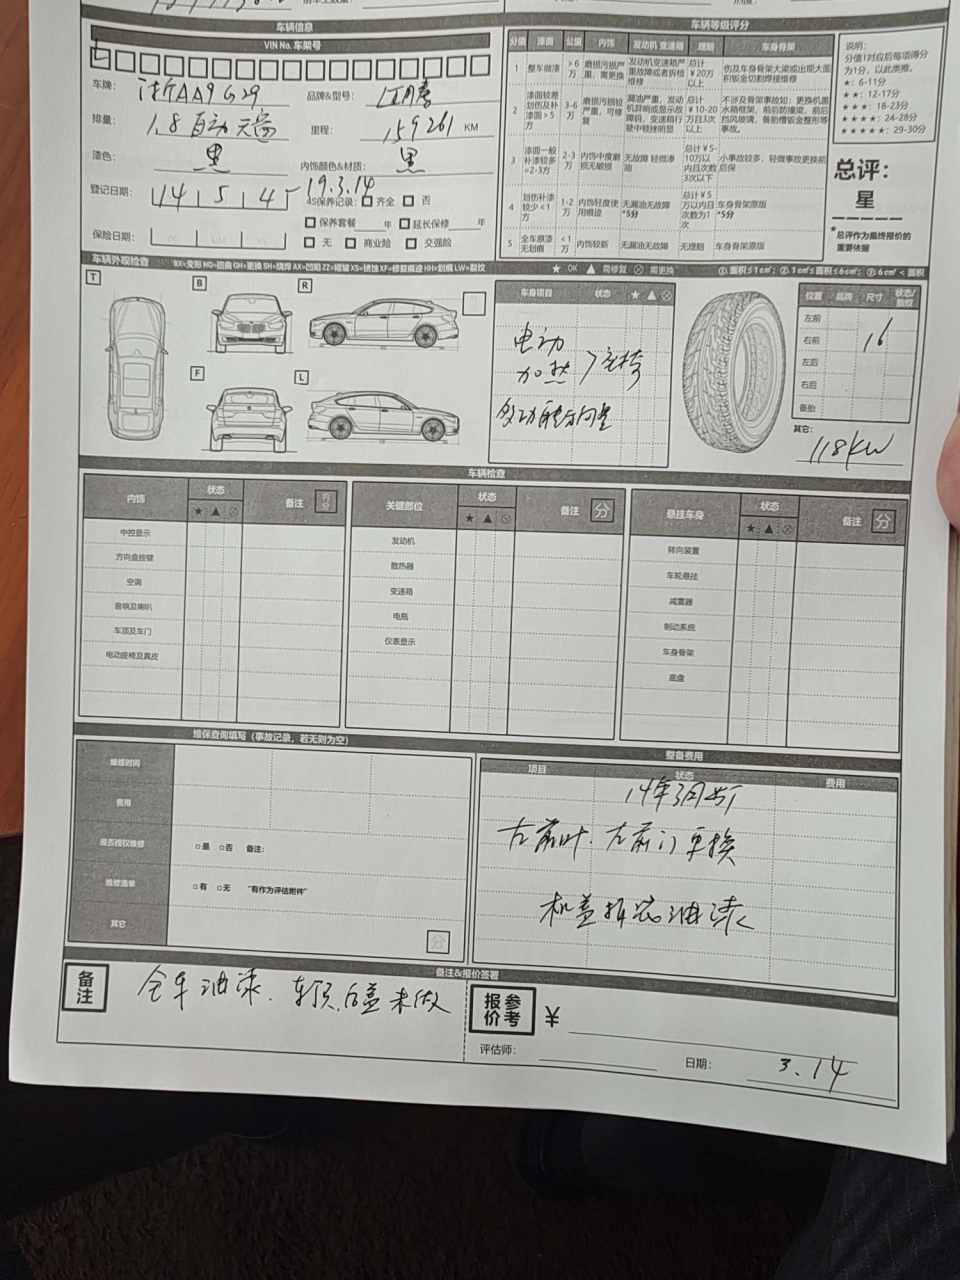 车辆信息
VIN No. 车架号
车牌: 浙AA9G29
品牌&型号:
排量: 1.8自动天窗
里程: 159261 KM
漆色: 黑
内饰颜色&材质: 黑
登记日期: 14 5 4
19.3.14
4S保养记录: 齐全 否
保养套餐 年 延长保修 年
保险日期:
无 商业险 交强险
车辆等级评分
分值 漆面 公里 内饰 发动机 变速箱 理赔 车身骨架
1 整车做漆 >6万 磨损污损严重,需更换 发动机变速箱严重故障或者拆检维修 总计¥20万以上 伤及车身骨架大梁或出现大面积钣金切割焊接维修
2 漆面较差划伤及补漆面>5方 3-6万 磨损污损较严重,可修复 漏油严重,发动机异响或显示故障码,变速箱行驶中顿挫明显 总计¥10-20万且3次以上 不涉及骨架事故如:更换机盖水箱框架,前后防撞梁,前后挡风玻璃,备胎槽钣金整形等事故。
3 漆面一般补漆较多=2-3方 2-3万 内饰中度磨损无破损 无故障 轻微渗油 总计¥5-10万以内且次数3次以下 小事故较多,轻微事故更换前后保
4 划伤补漆较少<1方 1-2万 内饰轻度使用痕迹 无漏油无故障 *5分 总计¥5万以内且次数为1次 车身骨架原版 *5分
5 全车原漆无划痕 <1万 内饰较新 无漏油无故障 无理赔 车身骨架原版
说明:
分值1对应后每项得分为1分,以此类推。
★: 6-11分
★★: 12-17分
★★★: 18-23分
★★★★: 24-28分
★★★★★: 29-30分
总评:
星
*总评作为最终报价的重要依据
车辆外观检查 BX=变形 NQ=扭曲 GH=更换 SH=烧焊 AX=凹陷 ZZ=褶皱 XS=锈蚀 XF=修复痕迹 HH=划痕 LW=裂纹
★ OK ▲ 需修复 ⊗ 需更换 ①.面积≤1c㎡; ②.1c㎡≤面积≤6c㎡; ③.6c㎡<面积
T B R
F L
车身项目 状态 ★ ▲ ⊗
电动
加热 > 座椅
多功能方向盘
位置 品牌 尺寸 状态/胎纹
左前
右前 16
左后
右后
备胎
其它:
118KW
车辆检查
内饰 状态 备注 内分
★ ▲ ⊗
中控显示
方向盘按键
空调
音响及喇叭
车顶及车门
电动座椅及真皮
关键部位 状态 备注 分
★ ▲ ⊗
发动机
散热器
变速箱
电瓶
仪表显示
悬挂车身 状态 备注 分
★ ▲ ⊗
转向装置
车轮悬挂
减震器
制动系统
车身骨架
底盘
维保查询填写(事故记录,若无则为空)
维修时间
费用
是否授权维修 □是 □否 备注:
维修清单 □有 □无 "有作为评估附件"
其它
分
整备费用
项目 状态 费用
14年3月出厂
左前叶.左前门更换
机盖拆装油漆
备注&报价签署
备注
全车油漆.车顶.后盖未做
参考报价 ¥
评估师:
日期: 3.14